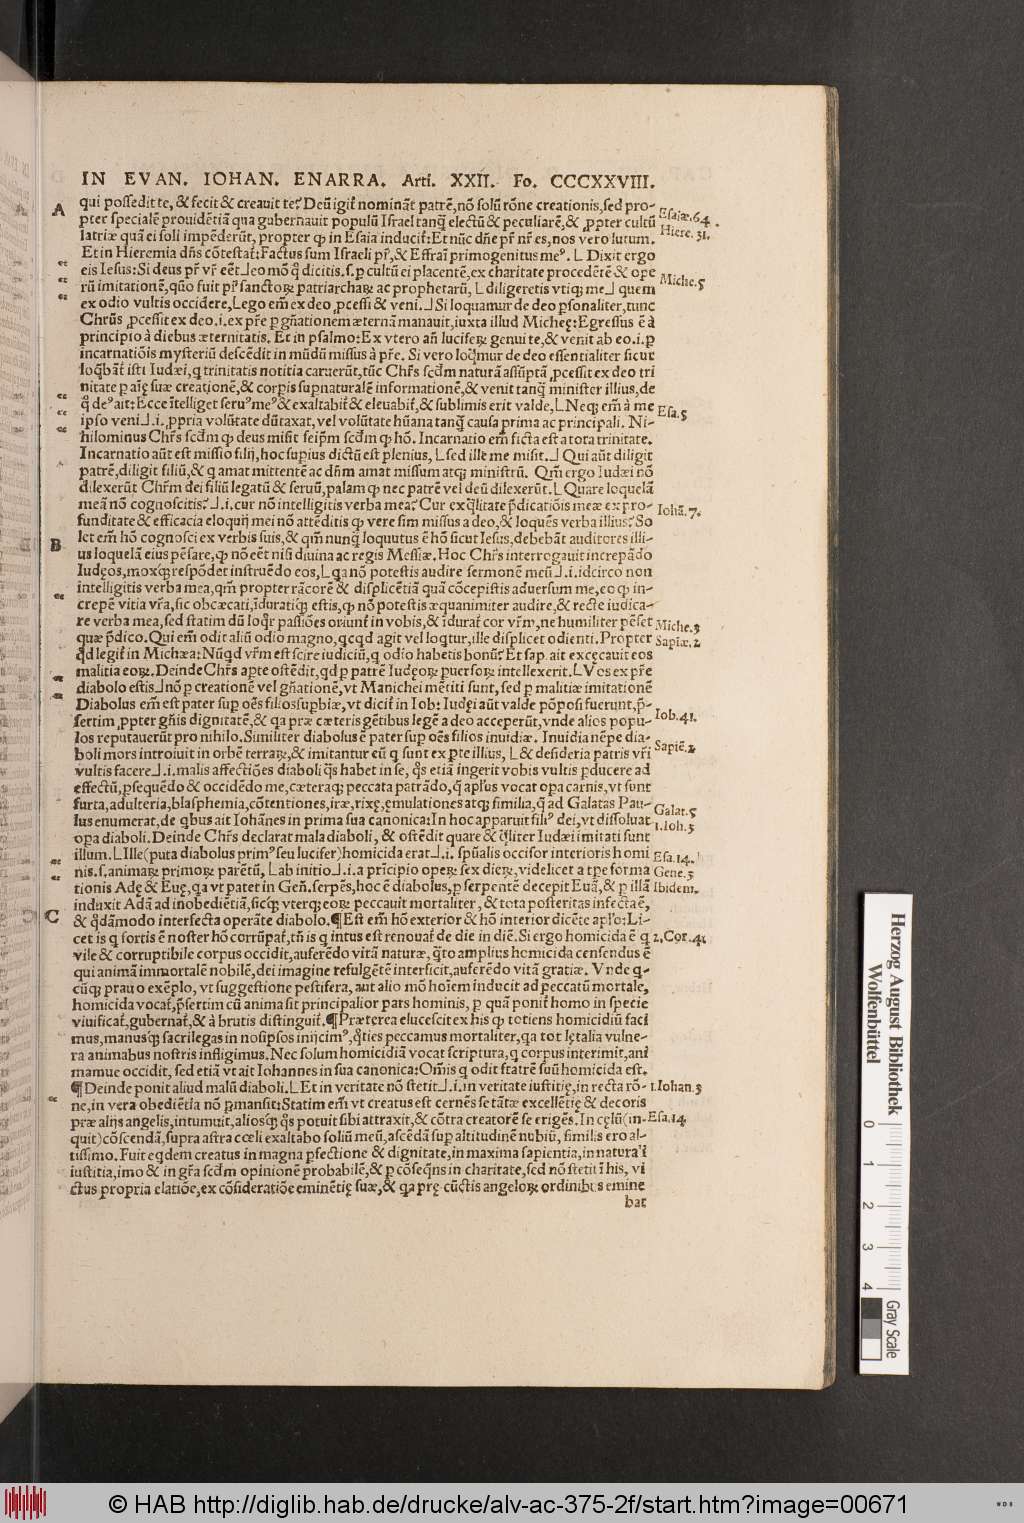 IN EVAN. IOHAN. ENARRA. Arti. XXII. Fo. CCCXXVIII.
A
qui possedit te, & fecit & creauit te? Deũ igit̃ nominãt patrẽ, nõ solũ rõne creationis, sed pro-
pter specialẽ prouidẽtiã qua gubernauit populũ Israel tanq̃ electũ & peculiarẽ, & ꝓpter cultũ
latriæ quã ei soli impẽderũt, propter ꝙ in Esaia inducit̃: Et nũc dñe pr̃ nr̃ es, nos vero lutum.
Esaiæ. 64.
Hiere. 31.
Et in Hieremia dñs cõtestat̃: Factus sum Israeli pr̃, & Effraĩ primogenitus meꝰ. L Dixit ergo
eis Iesus: Si deus pr̃ vr̃ eẽt ⅃ eo mõ q̃ dicitis. s. ꝑ cultũ ei placentẽ, ex charitate procedẽtẽ & ope
rũ imitationẽ, quõ fuit pr̃ sanctoꝝ patriarchaꝝ ac prophetarũ, L diligeretis vtiqꝫ me ⅃ quem
Miche. 5
ex odio vultis occidere, L ego em̃ ex deo ꝓcessi & veni. ⅃ Si loquamur de deo ꝑsonaliter, tunc
Christus ꝓcessit ex deo. i. ex pr̃e ꝑ gñationem æternã manauit, iuxta illud Micheę: Egressus ẽ à
principio à diebus æternitatis. Et in psalmo: Ex vtero añ luciferꝝ genui te, & venit ab eo. i. ꝑ
incarnatiõis mysteriũ descẽdit in mũdũ missus à pr̃e. Si vero loq̃mur de deo essentialiter sicut
loq̃bãt̃ isti Iudæi, q trinitatis notitia caruerũt, tũc Chr̃s scd̃m naturã assũptã ꝓcessit ex deo tri
nitate ꝑ aię suæ creationẽ, & corpis supnaturalẽ informationẽ, & venit tanq̃ minister illius, de
q̃ deꝰ ait: Ecce ĩtelliget seruꝰ meꝰ & exaltabit̃ & eleuabit̃, & sublimis erit valde, L Neqꝫ em̃ à me
Esa. 5
ipso veni ⅃. i. ꝓpria volũtate dũtaxat, vel volũtate hũana tanq̃ causa prima ac principali. Ni-
hilominus Chr̃s scd̃m ꝙ deus misit seip̃m scd̃m ꝙ hõ. Incarnatio em̃ facta est a tota trinitate.
Incarnatio aũt est missio filij, hoc supius dictũ est plenius, L sed ille me misit. ⅃ Qui aũt diligit
patrẽ, diligit filiũ, & q amat mittentẽ ac dñm amat missum atqꝫ ministrũ. Qm̃ ergo Iudæi nõ
dilexerũt Chr̃m dei filiũ legatũ & seruũ, palam ꝙ nec patrẽ vel deũ dilexerũt. L Quare loquelã
meã nõ cognoscitis? ⅃. i. cur nõ intelligitis verba mea? Cur ex q̃litate p̃dicatiõis meæ ex pro-
Iohã. 7.
funditate & efficacia eloquij mei nõ attẽditis ꝙ vere sim missus a deo, & loquẽs verba illius? So
B
let em̃ hõ cognosci ex verbis suis, & qm̃ nunq̃ loquutus ẽ hõ sicut Iesus, debebãt auditores illi-
us loquelã eius pẽsare, ꝙ nõ eẽt nisi diuina ac regis Messiæ. Hoc Chr̃s interrogauit increpãdo
Iudęos, moxqꝫ respõdet instruẽdo eos, L qa nõ potestis audire sermonẽ meũ ⅃. i. idcirco non
intelligitis verba mea, qm̃ propter rãcorẽ & displicẽtiã quã cõcepistis aduersum me, eo ꝙ in-
crepẽ vitia vr̃a, sic obcæcati, ĩduratiqꝫ estis, ꝙ nõ potestis æquanimiter audire, & recte iudica-
re verba mea, sed statim dũ loq̃r passiões oriunt̃ in vobis, & ĩdurat̃ cor vr̃m, ne humiliter pẽset
Miche. 3
quæ p̃dico. Qui em̃ odit aliũ odio magno, qcqd agit vel loq̃tur, ille displicet odienti. Propter
Sapiæ. 2
qd legit̃ in Michæa: Nũqd vr̃m est scire iudiciũ, q odio habetis bonũ? Et sap. ait excęcauit eos
malitia eoꝝ. Deinde Chr̃s apte ostẽdit, qd ꝑ patrẽ Iudęoꝝ ꝑuersoꝝ intellexerit. L Vos ex pr̃e
diabolo estis ⅃ nõ ꝑ creationẽ vel gñationẽ, vt Manichei mẽtiti sunt, sed ꝑ malitiæ imitationẽ
Diabolus em̃ est pater sup oẽs filios supbiæ, vt dicit̃ in Iob: Iudęi aũt valde põposi fuerunt, p̃-
Iob. 41.
sertim ꝓpter gñis dignitatẽ, & qa præ cæteris gẽtibus legẽ a deo acceperũt, vnde alios popu-
los reputauerũt pro nihilo. Similiter diabolus ẽ pater sup oẽs filios inuidiæ. Inuidia nẽpe dia-
Sapiẽ. 2
boli mors introiuit in orbẽ terraꝝ, & imitantur eũ q sunt ex ꝑte illius, L & desideria patris vr̃i
vultis facere ⅃. i. malis affectiões diaboli q̃s habet in se, q̃s etiã ingerit vobis vultis ꝑducere ad
effectũ, ꝑsequẽdo & occidẽdo me, cæteraqꝫ peccata patrãdo, q̃ apl̃us vocat opa carnis, vt sunt
furta, adulteria, blasphemia, cõtentiones, iræ, rixę, ęmulationes atqꝫ similia, q̃ ad Galatas Pau-
Galat. 5
lus enumerat, de qbus ait Iohãnes in prima sua canonica: In hoc apparuit filiꝰ dei, vt dissoluat
1. Ioh. 3
opa diaboli. Deinde Chr̃s declarat mala diaboli, & ostẽdit quare & q̃liter Iudæi imitati sunt
illum. L Ille (puta diabolus primꝰ seu lucifer) homicida erat ⅃. i. spũalis occisor interioris homi
Esa. 14.
nis. s. animaꝝ primoꝝ parẽtũ, L ab initio ⅃. i. a prĩcipio opeꝝ sex dieꝝ, videlicet a tꝑe forma
Gene. 3
tionis Adę & Euę, qa vt patet in Geñ. serpẽs, hoc ẽ diabolus, ꝑ serpentẽ decepit Euã, & ꝑ illã
Ibidem.
induxit Adã ad inobediẽtiã, sicqꝫ vterqꝫ eoꝝ peccauit mortaliter, & tota posteritas infecta ẽ,
C
& q̃dãmodo interfecta operãte diabolo. ¶ Est em̃ hõ exterior & hõ interior dicẽte apl̃o: Li-
cet is q foris ẽ noster hõ corrũpat̃, tñ is q intus est renouat̃ de die in diẽ. Si ergo homicida ẽ q
2. Cor. 4.
vile & corruptibile corpus occidit, auferẽdo vitã naturæ, q̃to amplius homicida censendus ẽ
qui animã immortalẽ nobilẽ, dei imagine refulgẽtẽ interficit, auferẽdo vitã gratiæ. Vnde q-
cũqꝫ prauo exẽplo, vt suggestione pestifera, aut alio mõ hoĩem inducit ad peccatũ mortale,
homicida vocat̃, p̃sertim cũ anima sit principalior pars hominis, ꝑ quã ponit̃ homo in specie
viuificat̃, gubernat̃, & à brutis distinguit̃. ¶ Præterea elucescit ex his ꝙ totiens homicidiũ faci
mus, manusqꝫ sacrilegas in nosip̃sos inijcimꝰ, q̃ties peccamus mortaliter, qa tot lętalia vulne-
ra animabus nostris infligimus. Nec solum homicidiã vocat scriptura, q corpus interimit, ani
mamue occidit, sed etiã vt ait Iohannes in sua canonica: Om̃is q odit fratrẽ suũ homicida est.
¶ Deinde ponit aliud malũ diaboli. L Et in veritate nõ stetit ⅃. i. in veritate iustitię, in recta rõ-
1. Iohan. 3
ne, in vera obediẽtia nõ ꝑmansit: Statim em̃ vt creatus est cernẽs se tãtæ excellẽtię & decoris
præ alijs angelis, intumuit, aliosqꝫ q̃s potuit sibi attraxit, & cõtra creatorẽ se erigẽs. In cęlũ (in-
Esa. 14
quit) cõscendã, supra astra cœli exaltabo soliũ meũ, ascẽdã sup altitudinẽ nubiũ, similis ero al-
tissimo. Fuit eqdem creatus in magna ꝑfectione & dignitate, in maxima sapientia, in naturali
iustitia, imo & in gr̃a scd̃m opinionẽ probabilẽ, & ꝑ cõseq̃ns in charitate, sed nõ stetit ĩ his, vi
ctus propria elatiõe, ex cõsideratiõe eminẽtię suæ, & qa prę cũctis angeloꝝ ordinibus emine
bat
Herzog August Bibliothek
Wolfenbüttel
0 1 2 3 4
Gray Scale
© HAB http://diglib.hab.de/drucke/alv-ac-375-2f/start.htm?image=00671